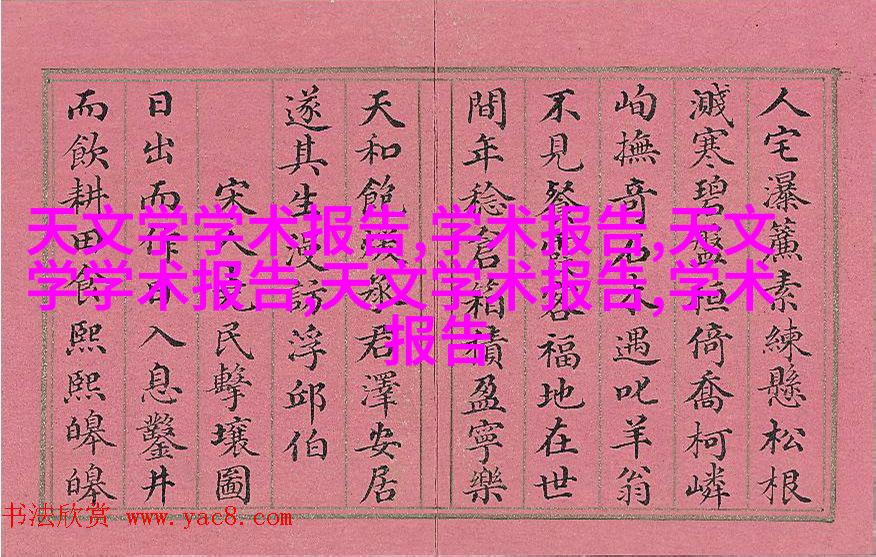 人宅瀑簾素練懸松根
濺寒碧盤桓倚喬柯嶙
峋撫奇遇叱羊翁
不見客福地在世
間年稔倉箱積盈寧樂
天和飽承君澤安居
遂其生漫訪浮邱伯
宋人民擊壤圖
日出而作日入息鑿井
而飲耕田食熙熙皞皞
天文学学术报告,学术报告,天文
学学术报告,天文学术报告,学术
报告
书法欣赏 www.yac8.com